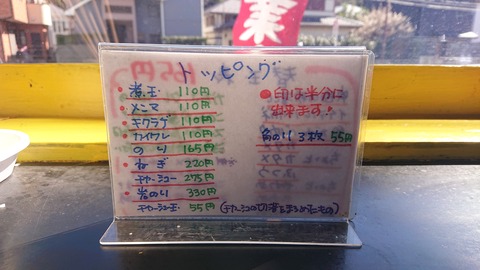 業
トッピング
• 煮玉 110円
• メンマ 110円
• キクラゲ 110円
• カイワレ 110円
のり 165円
• ねぎ 220円
チャーシュー 275円
• 岩のり 330円
チャーシュー玉 55円(チャーシューの切落をまるめたもの)
●印は半分に
出来ます!
角のり3枚 55円